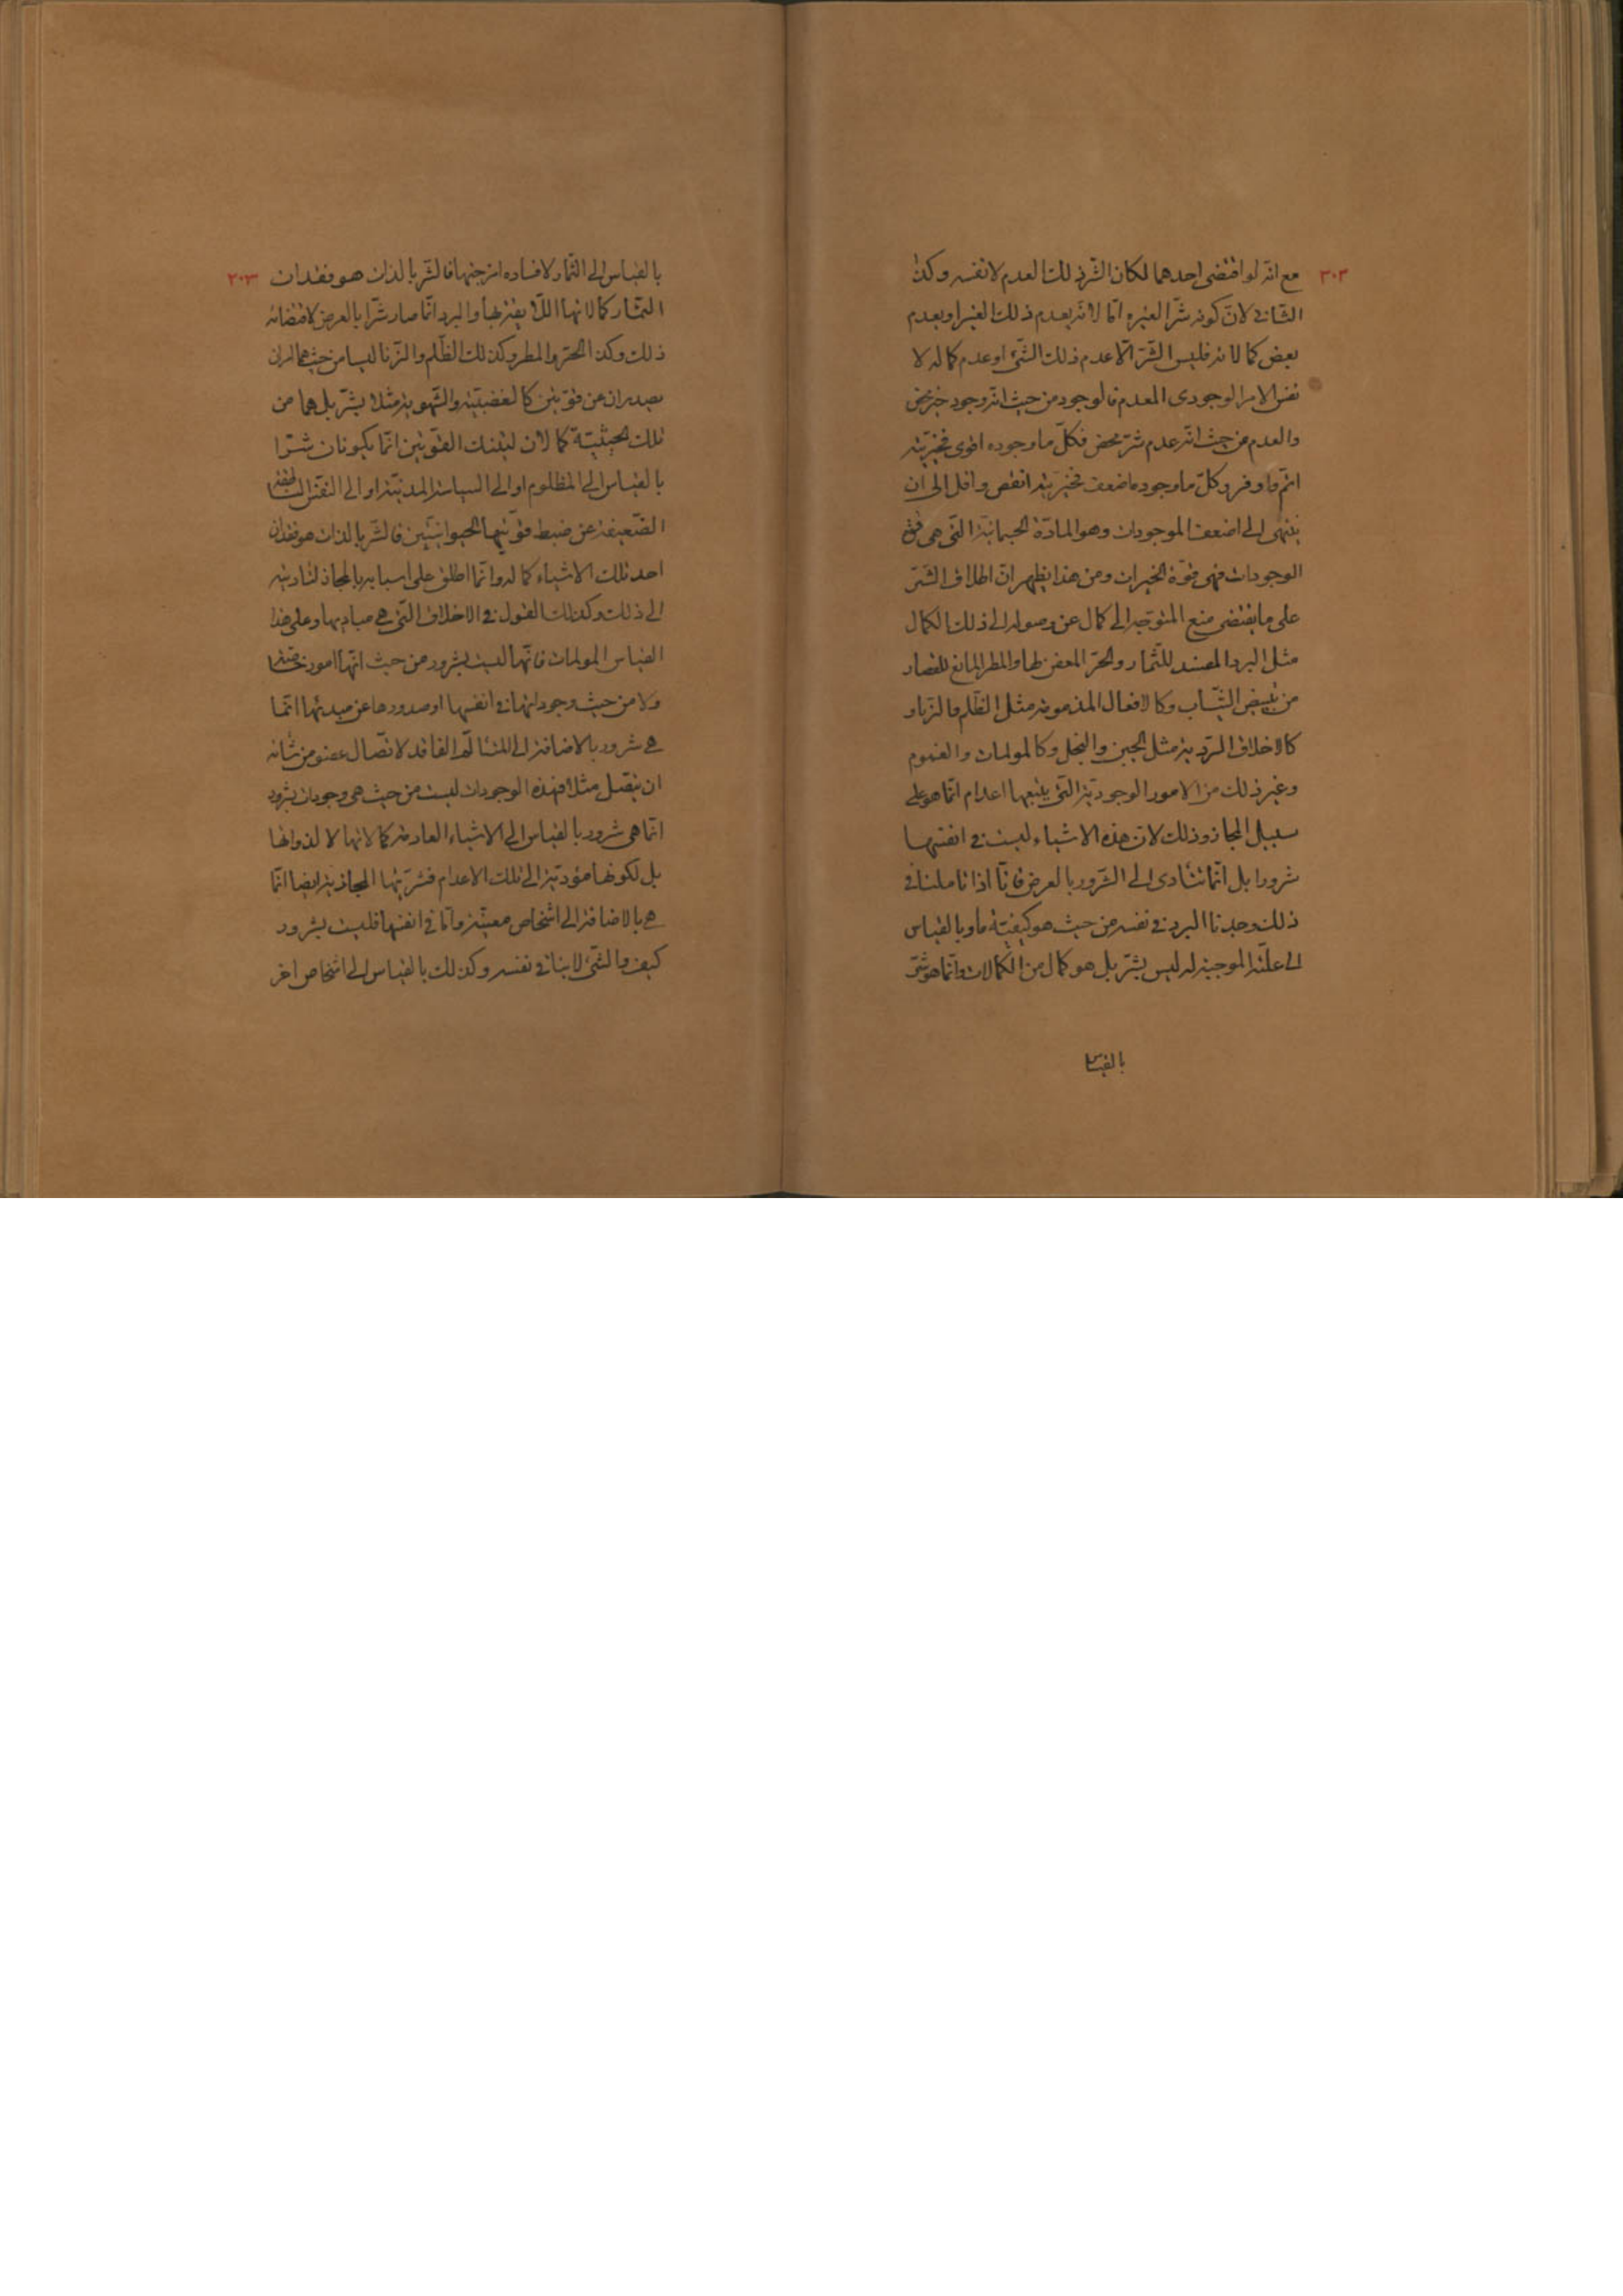 ٣٠٢
مع انه لو اقتضى احدهما لكان الشر ذلك العدم لا نفسه وكذا
الثانى لان كونه شرا لغيره اما لانه يعدم ذلك الغير او يعدم
بعض كمالاته فليس الشر الا عدم ذلك الشئ او عدم كماله لا
نفس الامر الوجودى المعدم فالوجود من حيث انه وجود خير محض
والعدم من حيث انه عدم شر محض فكل ما وجوده اقوى فخيريته
اتم واوفر وكل ما وجوده اضعف فخيريته انقص واقل الى ان
ينتهى الى اضعف الموجودات وهو المادة الجسمانية التى هى قوة
الوجودات فهى قوة الخيرات ومن هذا يظهر ان اطلاق الشر
على ما يقتضى منع المتوجه الى كمال عن وصوله الى ذلك الكمال
مثل البرد المفسد للثمار والحر المعفن لها والمطر المانع للقصار
من تبييض الثياب وكالافعال المذمومة مثل الظلم والزنا و
كالاخلاق الردية مثل الجبن والبخل وكالمولمات والغموم
وغير ذلك من الامور الوجودية التى يتبعها اعدام انما هو على
سبيل المجاز وذلك لان هذه الاشياء ليست فى انفسها
شرورا بل انما تتادى الى الشرور بالعرض فانا اذا تاملنا فى
ذلك وجدنا البرد فى نفسه من حيث هو كيفية ما وبالقياس
الى علته الموجبة له ليس بشر بل هو كمال من الكمالات وانما هو شر
بالقياس
٣٠٣
بالقياس الى الثمار لافساده امزجتها فالشر بالذات هو فقدان
الثمار كمالاتها اللايقة بها والبرد انما صار شرا بالعرض لاقتضائه
ذلك وكذا الحر والمطر وكذلك الظلم والزنا ليسا من حيث هما امران
يصدران عن قوتين كالغضبية والشهوية مثلا بشر بل هما من
تلك الحيثية كمالان لتينك القوتين انما يكونان شرا
بالقياس الى المظلوم او الى السياسة المدنية او الى النفس الناطقة
الضعيفة عن ضبط قوتيها الحيوانيتين فالشر بالذات هو فقدان
احد تلك الاشياء كماله وانما اطلق على اسبابه بالمجاز لتاديته
الى ذلك وكذلك القول فى الاخلاق التى هى مباديها وعلى هذا
القياس المولمات فانها ليست بشرور من حيث انها امور خاصة
ولا من حيث وجوداتها فى انفسها او صدورها عن مبدئها انما
هى شرور بالاضافة الى المتالم الفاقد لاتصال عضو من شانه
ان يتصل مثلا فهذه الوجودات ليست من حيث هى وجودات بشرور
انما هى شرور بالقياس الى الاشياء العادمة كمالاتها لا لذواتها
بل لكونها مؤدية الى تلك الاعدام فشريتها المجازية ايضا انما
هى بالاضافة الى اشخاص معينة واما فى انفسها فليست بشرور
كيف والشئ لا ينافى نفسه وكذلك بالقياس الى اشخاص اخر